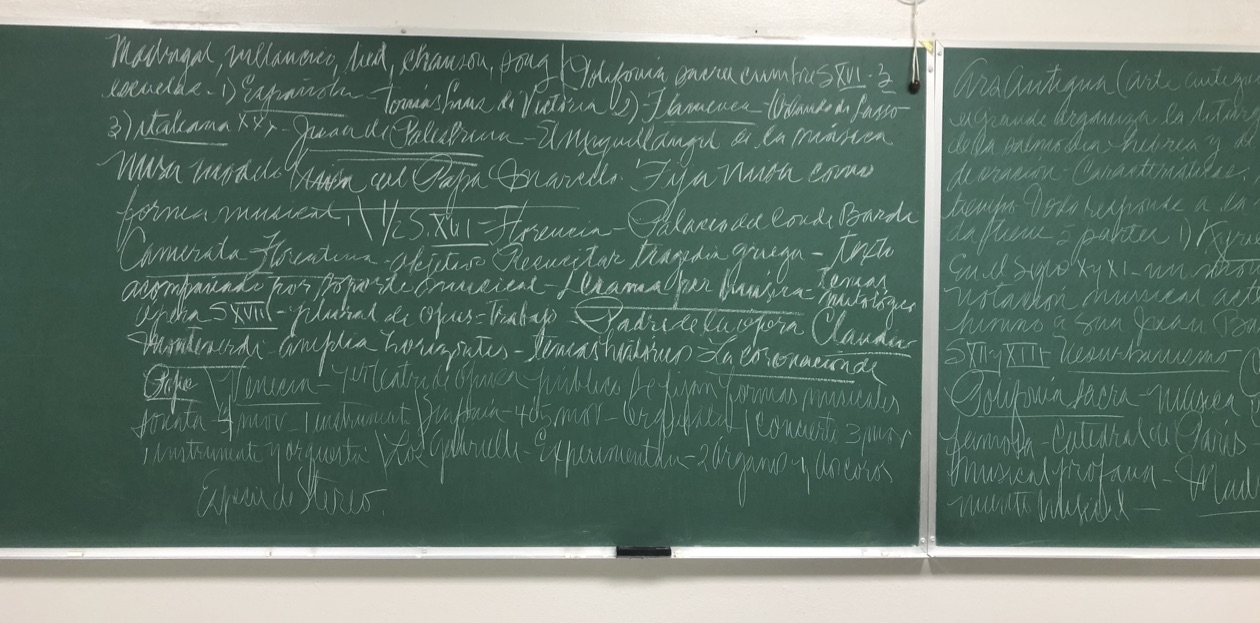 Madrigal, villancico, lied, chanson, song | Polifonía sacra cumbre S XVI - 3
escuelas - 1) Española - Tomás Luis de Victoria 2) Flamenca - Orlando de Lasso
3) Italiana XXX - Juan de Palestrina - El Miguel Angel de la música
Misa modelo del Papa Marcelo. Fija misa como
forma musical, \ 1/2 S. XVI - Florencia - Palacio del Conde Bardi
Camerata Florentina - objetivo Resucitar tragedia griega - texto
acompañado por soporte musical - Drama per música - temas mitológicos
opera S XVIII - plural de opus - trabajo Padre de la opera Claudio
Monteverdi - amplia horizontes - temas históricos - La coronación de
Popea \ Venecia - 1er teatro de ópera público Se fijan formas musicales
sonata - 4 mov - 1 instrument | Sinfonía - 4 ó 5 mov - orquesta | concierto 3 mov
1 instrumento y orquesta \ Los Gabrielli - Experimentan - 2 órganos y dos coros
Especie de Stereo.
Ars Antigua (arte antig
el grande organiza la litur
de la teórica y d
de oración - Características,
tiempo Todo responde a la
da tiene 5 partes 1) Kyr
En el siglo X y XI - un
notación musical
himno a San Juan B
S XII y XIII - Resurbanismo (
Polifonía sacra - música
famosa - Catedral de París
musical profana - Mad
musical -